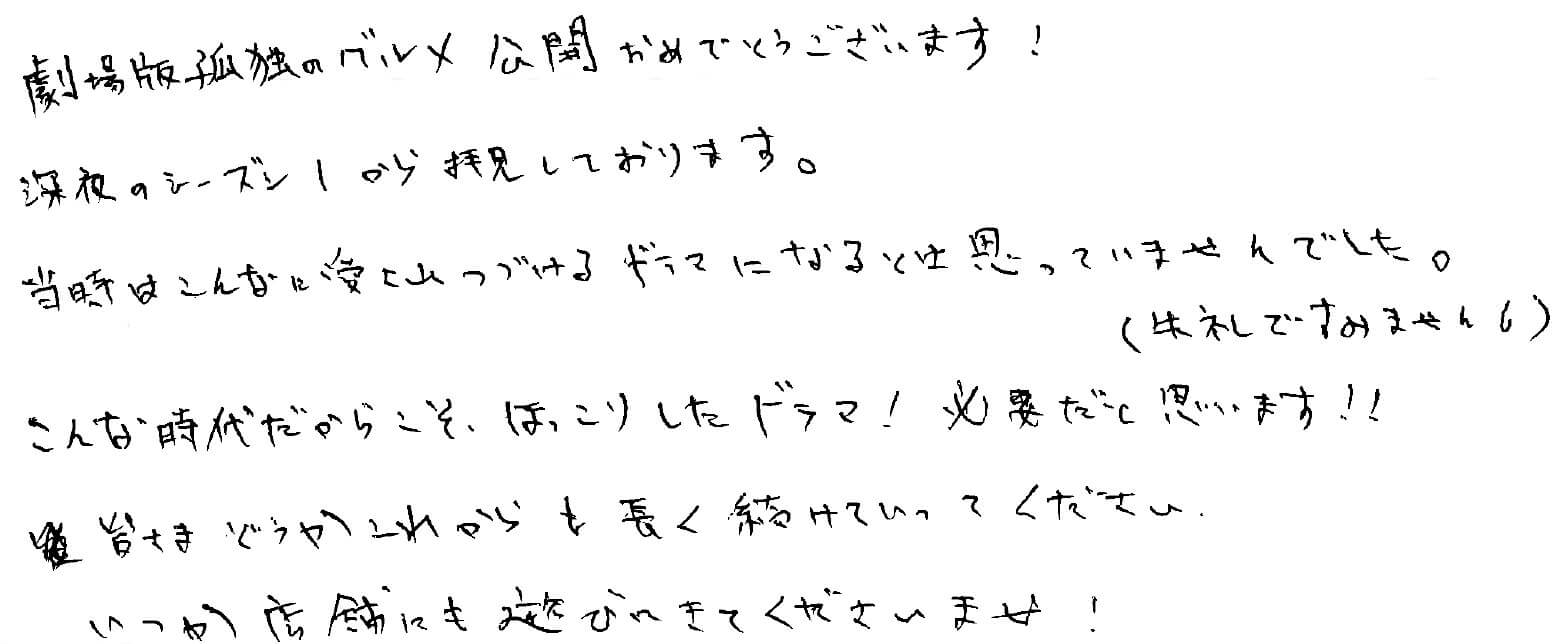 劇場版孤独のグルメ 公開おめでとうございます!
深夜のシーズン1から拝見しております。
当時はこんなに愛されつづけるドラマになるとは思っていませんでした。
(失礼ですみません!)
こんな時代だからこそ、ほっこりしたドラマ!必要だと思います!!
皆さまどうかこれからも長く続けていってください.
いつか店舗にも遊びにきてくださいませ!